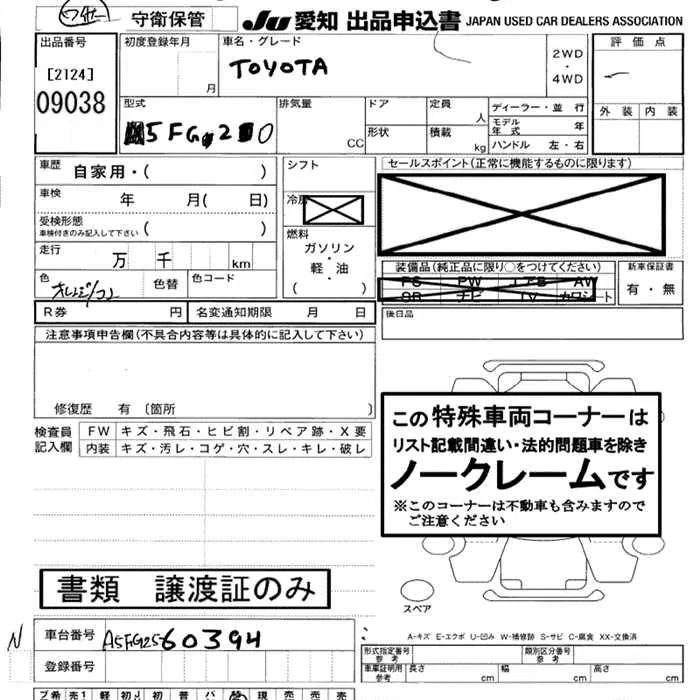 守衛保管
JU 愛知 出品申込書 JAPAN USED CAR DEALERS ASSOCIATION
出品番号
[2124]
09038
初度登録年月
月
車名・グレード
TOYOTA
2WD
・
4WD
評価点
外装 内装
型式
5FG 2 0
排気量
CC
ドア
形状
定員
人
積載
kg
ディーラー・並行
モデル年式 年
ハンドル 左・右
車歴 自家用・( )
車検 年 月( 日)
受検形態
車検付きのみ記入して下さい ( )
走行 万 千 km
色 オレンジ/コン 色替 色コード
シフト
冷房
燃料
ガソリン
・
軽・油
( )
セールスポイント(正常に機能するものに限ります)
装備品(純正品に限り○をつけてください)
PS PW エアB AW
SR ナビ TV カワシート
新車保証書
有・無
後日品
R券 円 名変通知期限 月 日
注意事項申告欄(不具合内容等は具体的に記入して下さい)
修復歴 有 〔箇所 〕
検査員記入欄
FW キズ・飛石・ヒビ割・リペア跡・X要
内装 キズ・汚レ・コゲ・穴・スレ・キレ・破レ
この特殊車両コーナーは
リスト記載間違い・法的問題車を除き
ノークレームです
※このコーナーは不動車も含みますので
ご注意ください
書類 譲渡証のみ
スペア
N
車台番号 A5FG25-60394
登録番号
A-キズ E-エクボ U-凹み W-補修跡 S-サビ C-腐食 XX-交換済
形式指定番号
参考
類別区分番号
参考
車庫証明用
参考
長さ cm 幅 cm 高さ cm